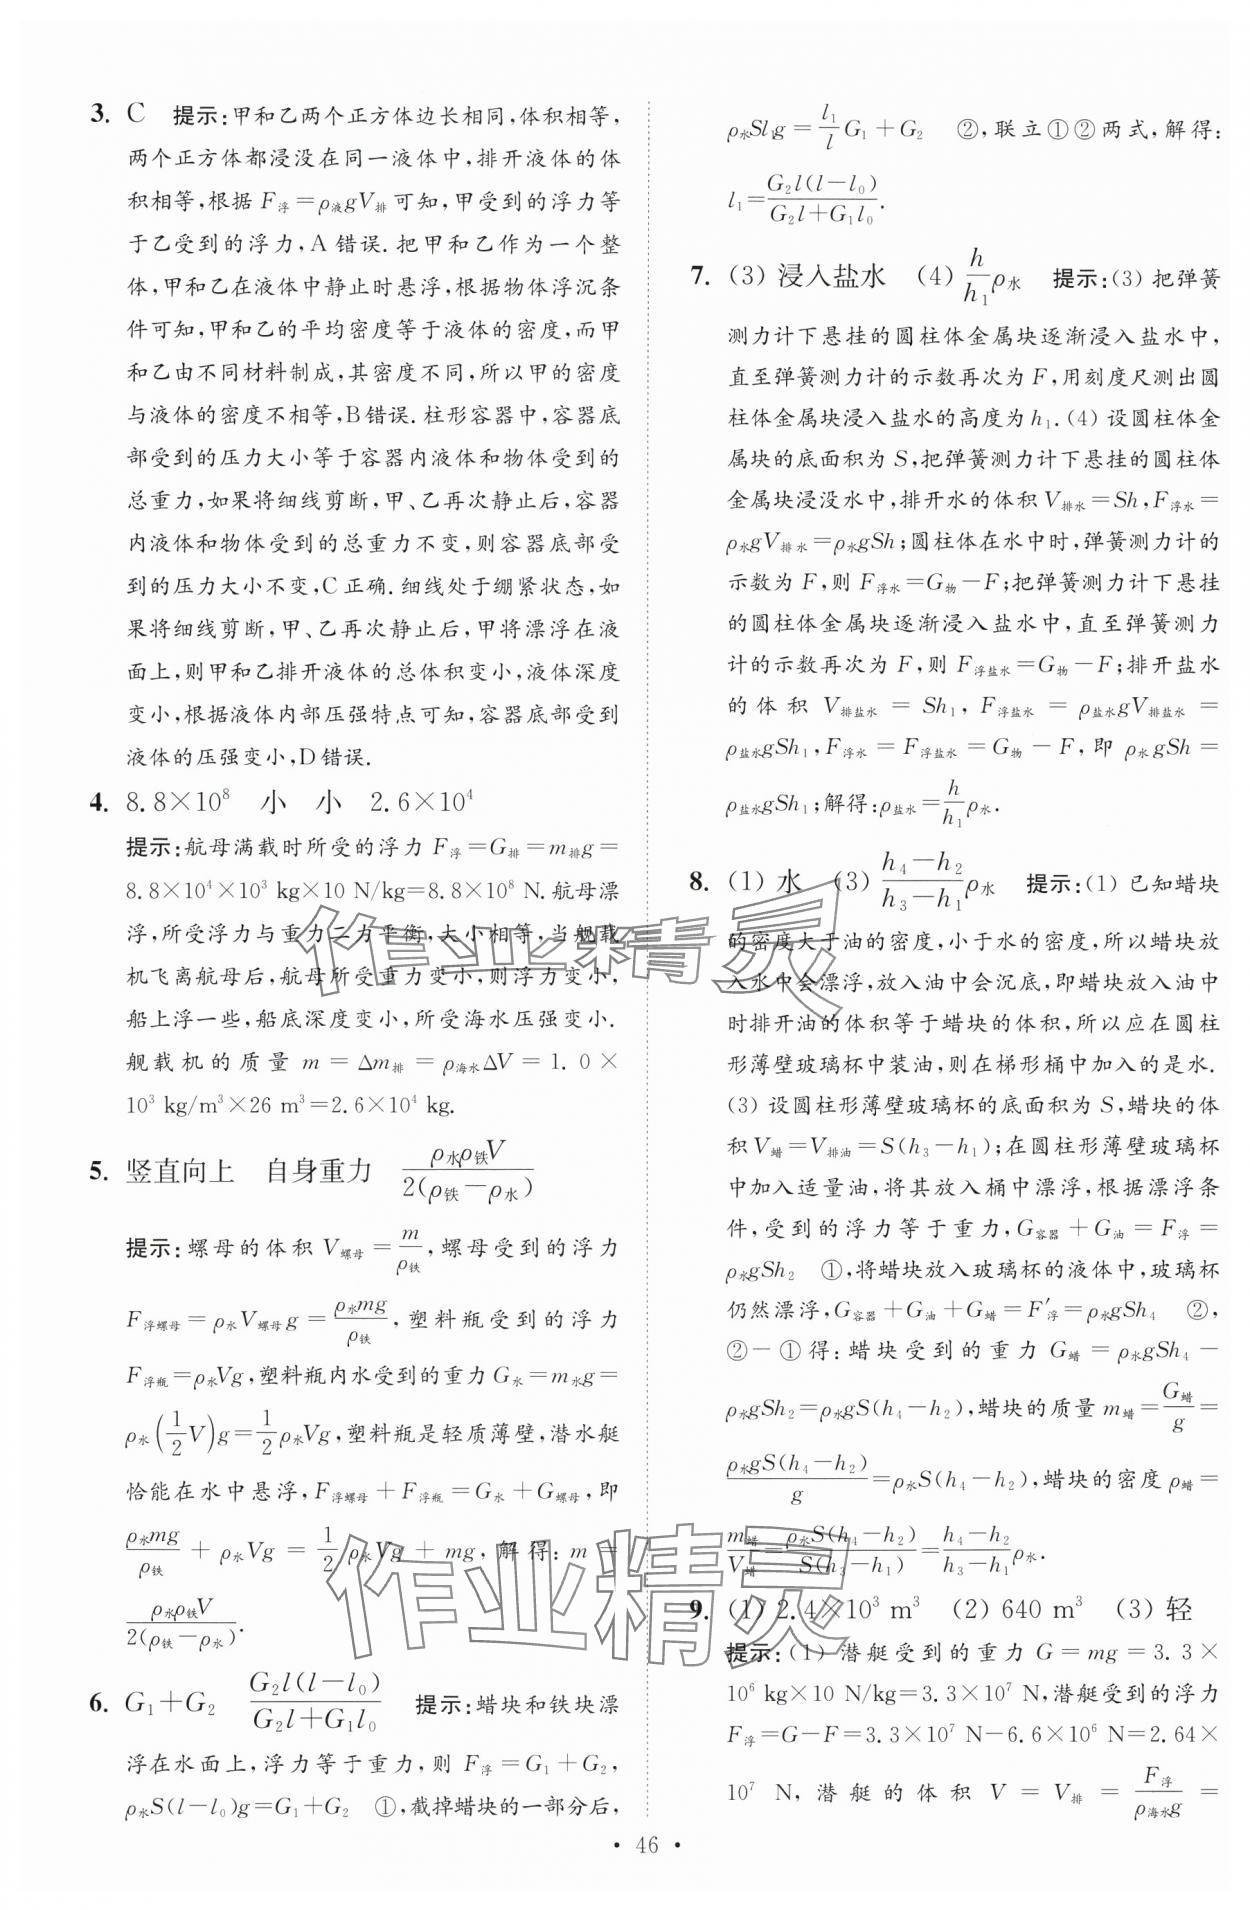 3. C　提示:甲和乙两个正方体边长相同,体积相等,
两个正方体都浸没在同一液体中,排开液体的体
积相等,根据 F浮=ρ液gV排 可知,甲受到的浮力等
于乙受到的浮力,A 错误. 把甲和乙作为一个整
体,甲和乙在液体中静止时悬浮,根据物体浮沉条
件可知,甲和乙的平均密度等于液体的密度,而甲
和乙由不同材料制成,其密度不同,所以甲的密度
与液体的密度不相等,B错误. 柱形容器中,容器底
部受到的压力大小等于容器内液体和物体受到的
总重力,如果将细线剪断,甲、乙再次静止后,容器
内液体和物体受到的总重力不变,则容器底部受
到的压力大小不变,C 正确. 细线处于绷紧状态,如
果将细线剪断,甲、乙再次静止后,甲将漂浮在液
面上,则甲和乙排开液体的总体积变小,液体深度
变小,根据液体内部压强特点可知,容器底部受到
液体的压强变小,D 错误.
4. 8.8×10⁸　小　小　2.6×10⁴
提示:航母满载时所受的浮力 F浮=G排=m排g=
8.8×10⁴×10³ kg×10 N/kg=8.8×10⁸ N. 航母漂
浮,所受浮力与重力二力平衡,大小相等,当舰载
机飞离航母后,航母所受重力变小,则浮力变小,
船上浮一些,船底深度变小,所受海水压强变小.
舰载机的质量 m = Δm排 = ρ海水ΔV = 1.0 ×
10³ kg/m³×26 m³=2.6×10⁴ kg.
5. 竖直向上　自身重力　ρ水ρ铁V/2(ρ铁−ρ水)
提示:螺母的体积 V螺母=m/ρ铁,螺母受到的浮力
F浮螺母=ρ水V螺母g=ρ水mg/ρ铁,塑料瓶受到的浮力
F浮瓶=ρ水Vg,塑料瓶内水受到的重力 G水=m水g=
ρ水(1/2 V)g=1/2 ρ水Vg,塑料瓶是轻质薄壁,潜水艇
恰能在水中悬浮,F浮螺母+F浮瓶=G水+G螺母,即
ρ水mg/ρ铁 + ρ水Vg = 1/2 ρ水Vg + mg,解得:m =
ρ水ρ铁V/2(ρ铁−ρ水).
6. G₁+G₂　G₂l(l−l₀)/G₂l+G₁l₀　提示:蜡块和铁块漂
浮在水面上,浮力等于重力,则 F浮=G₁+G₂,
ρ水S(l−l₀)g=G₁+G₂　①,截掉蜡块的一部分后,
ρ水Sl₁g=l₁/l G₁+G₂　②,联立①②两式,解得:
l₁=G₂l(l−l₀)/G₂l+G₁l₀.
7. (3) 浸入盐水　(4) h/h₁ ρ水　提示:(3) 把弹簧
测力计下悬挂的圆柱体金属块逐渐浸入盐水中,
直至弹簧测力计的示数再次为 F,用刻度尺测出圆
柱体金属块浸入盐水的高度为 h₁. (4) 设圆柱体金
属块的底面积为 S,把弹簧测力计下悬挂的圆柱体
金属块浸没水中,排开水的体积 V排水=Sh,F浮水=
ρ水gV排水=ρ水gSh;圆柱体在水中时,弹簧测力计的
示数为 F,则 F浮水=G物−F;把弹簧测力计下悬挂
的圆柱体金属块逐渐浸入盐水中,直至弹簧测力
计的示数再次为 F,则 F浮盐水=G物−F;排开盐水
的体积 V排盐水 = Sh₁, F浮盐水 = ρ盐水gV排盐水 =
ρ盐水gSh₁,F浮水 = F浮盐水 = G物 − F,即 ρ水gSh =
ρ盐水gSh₁;解得:ρ盐水=h/h₁ ρ水.
8. (1) 水　(3) h₄−h₂/h₃−h₁ ρ水　提示:(1) 已知蜡块
的密度大于油的密度,小于水的密度,所以蜡块放
入水中会漂浮,放入油中会沉底,即蜡块放入油中
时排开油的体积等于蜡块的体积,所以应在圆柱
形薄壁玻璃杯中装油,则在梯形桶中加入的是水.
(3) 设圆柱形薄壁玻璃杯的底面积为 S,蜡块的体
积 V蜡=V排油=S(h₃−h₁);在圆柱形薄壁玻璃杯
中加入适量油,将其放入桶中漂浮,根据漂浮条
件,受到的浮力等于重力,G容器+G油=F浮=
ρ水gSh₂　①,将蜡块放入玻璃杯的液体中,玻璃杯
仍然漂浮,G容器+G油+G蜡=F′浮=ρ水gSh₄　②,
②−①得:蜡块受到的重力 G蜡=ρ水gSh₄−
ρ水gSh₂=ρ水gS(h₄−h₂),蜡块的质量 m蜡=G蜡/g=
ρ水gS(h₄−h₂)/g=ρ水S(h₄−h₂),蜡块的密度 ρ蜡=
m蜡/V蜡=ρ水S(h₄−h₂)/S(h₃−h₁)=h₄−h₂/h₃−h₁ ρ水.
9. (1) 2.4×10³ m³　(2) 640 m³　(3) 轻
提示:(1) 潜艇受到的重力 G=mg=3.3×
10⁶ kg×10 N/kg=3.3×10⁷ N,潜艇受到的浮力
F浮=G−F=3.3×10⁷ N−6.6×10⁶ N=2.64×
10⁷ N,潜艇的体积 V = V排 = F浮/ρ海水g =
· 46 ·
作业精灵
作业精灵